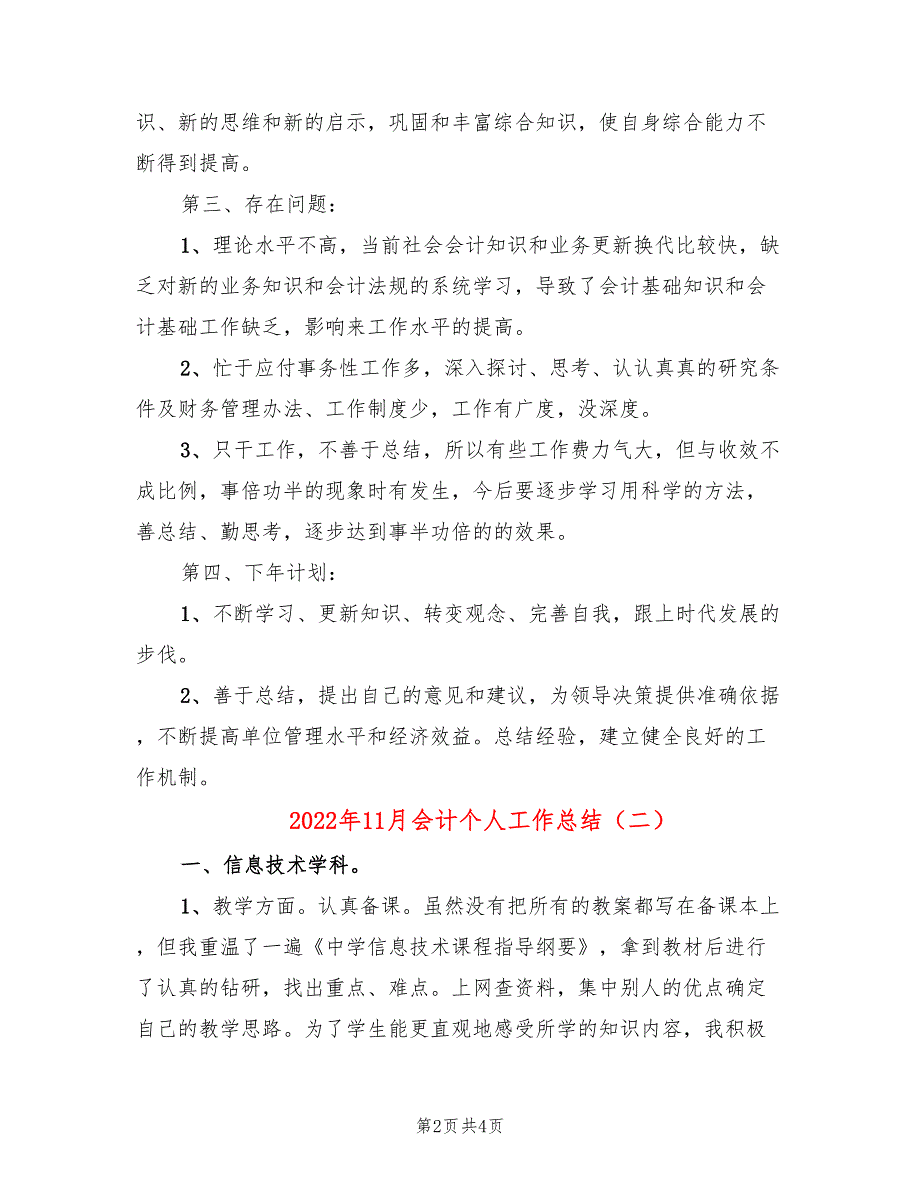 识、新的思维和新的启示，巩固和丰富综合知识，使自身综合能力不
断得到提高。
第三、存在问题：
1、理论水平不高，当前社会会计知识和业务更新换代比较快，缺
乏对新的业务知识和会计法规的系统学习，导致了会计基础知识和会
计基础工作缺乏，影响来工作水平的提高。
2、忙于应付事务性工作多，深入探讨、思考、认认真真的研究条
件及财务管理办法、工作制度少，工作有广度，没深度。
3、只干工作，不善于总结，所以有些工作费力气大，但与收效不
成比例，事倍功半的现象时有发生，今后要逐步学习用科学的方法，
善总结、勤思考，逐步达到事半功倍的的效果。
第四、下年计划：
1、不断学习、更新知识、转变观念、完善自我，跟上时代发展的
步伐。
2、善于总结，提出自己的意见和建议，为领导决策提供准确依据
，不断提高单位管理水平和经济效益。总结经验，建立健全良好的工
作机制。
2022年11月会计个人工作总结（二）
一、信息技术学科。
1、教学方面。认真备课。虽然没有把所有的教案都写在备课本上
，但我重温了一遍《中学信息技术课程指导纲要》，拿到教材后进行
了认真的钻研，找出重点、难点。上网查资料，集中别人的优点确定
自己的教学思路。为了学生能更直观地感受所学的知识内容，我积极
第2页共4页